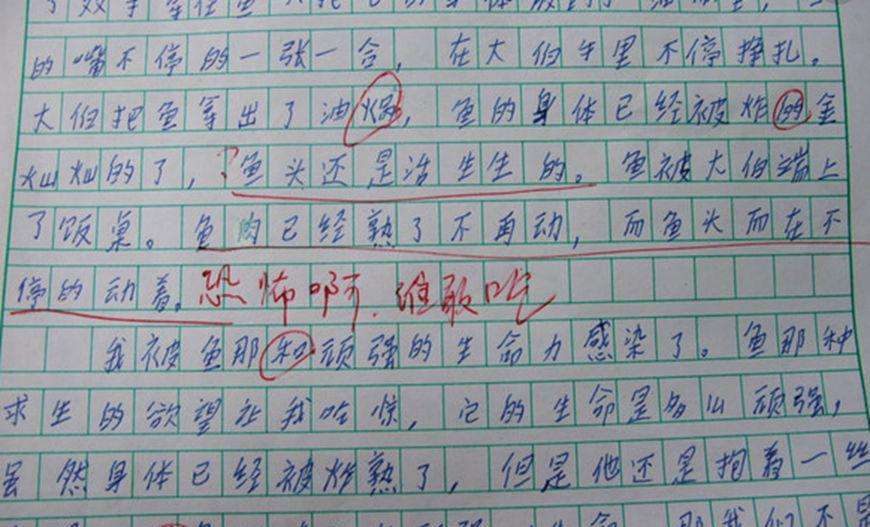 的嘴不停的一张一合,在大伯手里不停挣扎。
大伯把鱼拿出了油锅,鱼的身体已经被炸的金
灿灿的了,?鱼头还是活生生的。鱼被大伯端上
了饭桌。鱼肉已经熟了不再动,而鱼头而在不
停的动着。恐怖啊.谁敢吃
我被鱼那和顽强的生命力感染了。鱼那种
求生的欲望让我吃惊,它的生命是多么顽强,
虽然身体已经被炸熟了,但是他还是抱着一丝